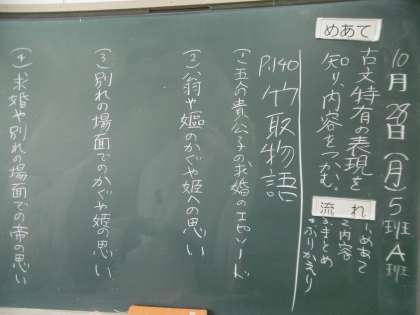 10月28日(月)5班A班
めあて
古文特有の表現を
知り、内容をつかむ。
流れ
1.めあて
2.内容
3.まとめ
4.ふりかえり
P.140 竹取物語
(1)五人の貴公子の求婚のエピソード
(2)翁や嫗のかぐや姫への思い
(3)別れの場面でのかぐや姫の思い
(4)求婚や別れの場面での帝の思い